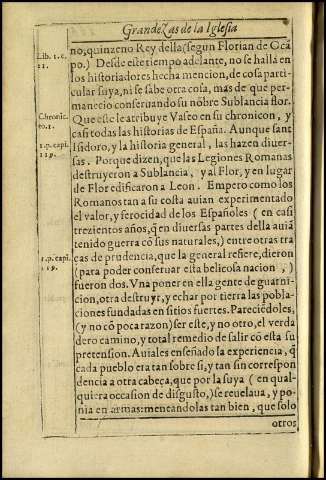 GrandeZas de la Iglesia
Lib. 1. c.
11.
no, quinzeno Rey della (segun Florian de Ocã
po.) Desde este tiempo adelante, no se halla en
los historiadores hecha mencion, de cosa parti
cular suya, ni se sabe otra cosa, mas de que per-
manecio conseruando su nõbre Sublancia flor.
Chronic.
to. 1.
Que este le atribuye Vaseo en su chronicon, y
casi todas las historias de España. Aunque sant
1. p. capi.
119.
Isidoro, y la historia general, las hazen diuer-
sas. Porque dizen, que las Legiones Romanas
destruyeron a Sublancia, y al Flor, y en lugar
de Flor edificaron a Leon. Empero como los
Romanos tan a su costa auian experimentado
el valor, y ferocidad de los Españoles (en casi
trezientos años, q̃ en diuersas partes della auiã
tenido guerra cõ sus naturales,) entre otras tra
1. p. capi.
119.
ças de prudencia, que la general refiere, dieron
(para poder conseruar esta belicosa nacion,)
fueron dos. Vna poner en ella gente de guarni-
cion, otra destruyr, y echar por tierra las pobla-
ciones fundadas en sitios fuertes. Pareciẽdoles,
(y no cõ poca razon) ser este, y no otro, el verda
dero camino, y total remedio de salir cõ esta su
pretension. Auiales enseñado la experiencia, q̃
cada pueblo era tan sobre si, y tan sin correspon
dencia a otra cabeça, que por la suya (en qual-
quiera occasion de disgusto,) se reuelaua, y po-
nia en armas: meneandolas tan bien, que solo
otros